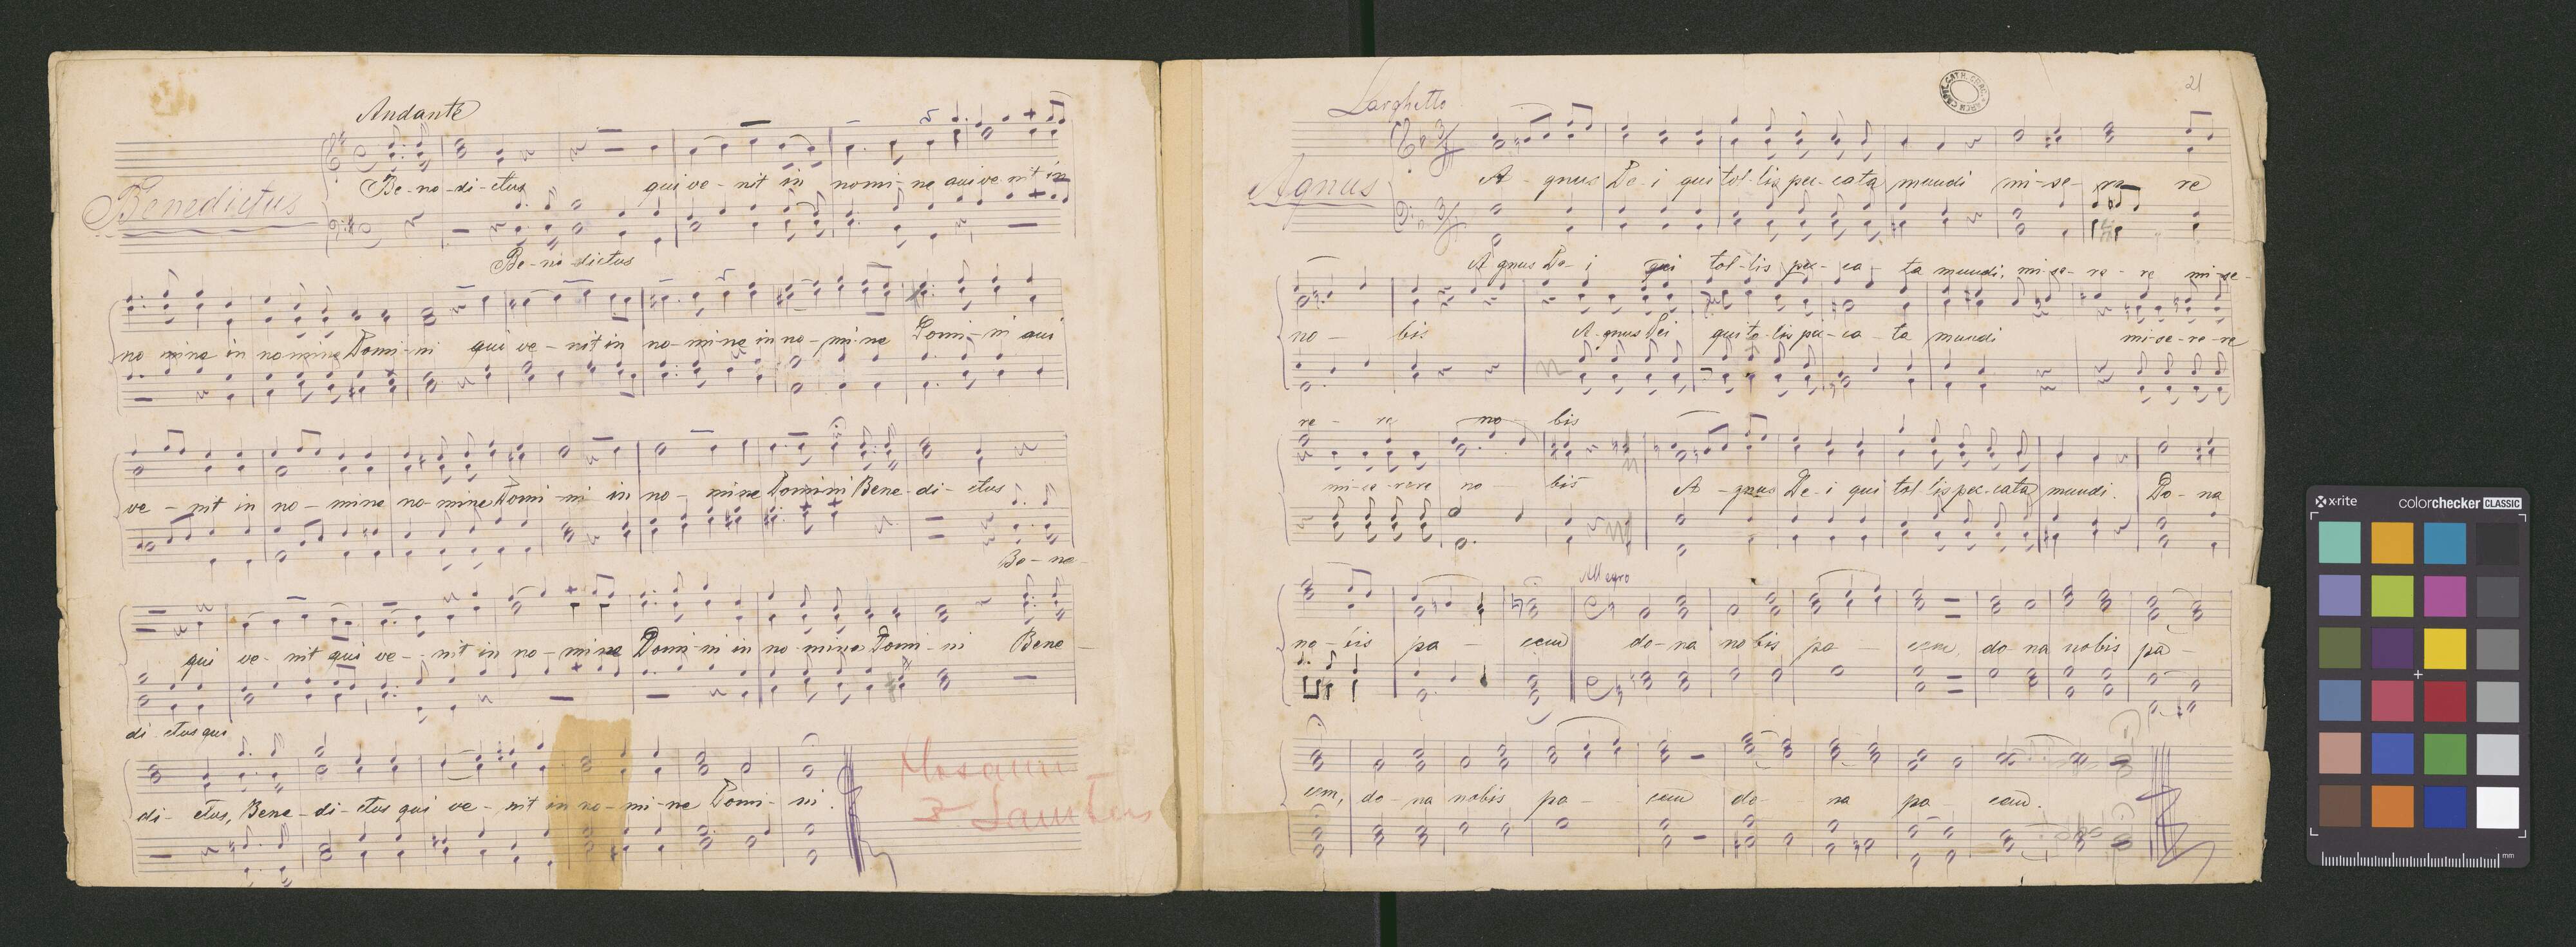 Andante
Benedictus
Be-ne-di-ctus qui ve-nit in nomi-ne qui ve-nit in
Be-ne dictus
no mine in no mine Domi-ni qui ve-nit in no-mi-ne in no-mi-ne Domi-ni qui
ve-nit in no-mine no-mine Domi-ni in no-mine Domini Bene-di-ctus
Be-ne-
qui ve-nit qui ve-nit in no-mine Domi-ni in no-mine Domi-ni Bene-
di-ctus qui
di-ctus, Bene-di-ctus qui ve-nit in no-mi-ne Domi-ni.
Hosanna
z Sanctus
21
Larghetto
Agnus
A-gnus De-i qui tol-lis pec-cata mundi mi-se-re re
A gnus De-i qui tol-lis pec-ca-ta mundi, mi-se-re-re mi-se-
no-bis A-gnus Dei qui to-lis pec-ca-ta mundi mi-se-re-re
re-re no-bis
mi-se-rere no-bis A-gnus De-i qui tol lis pec-cata mundi. Do-na
Allegro
no-bis pa-cem do-na nobis pa-cem, do-na nobis pa-
cem, do-na nobis pa-cem do-na pa-cem.
x-rite colorchecker CLASSIC
mm